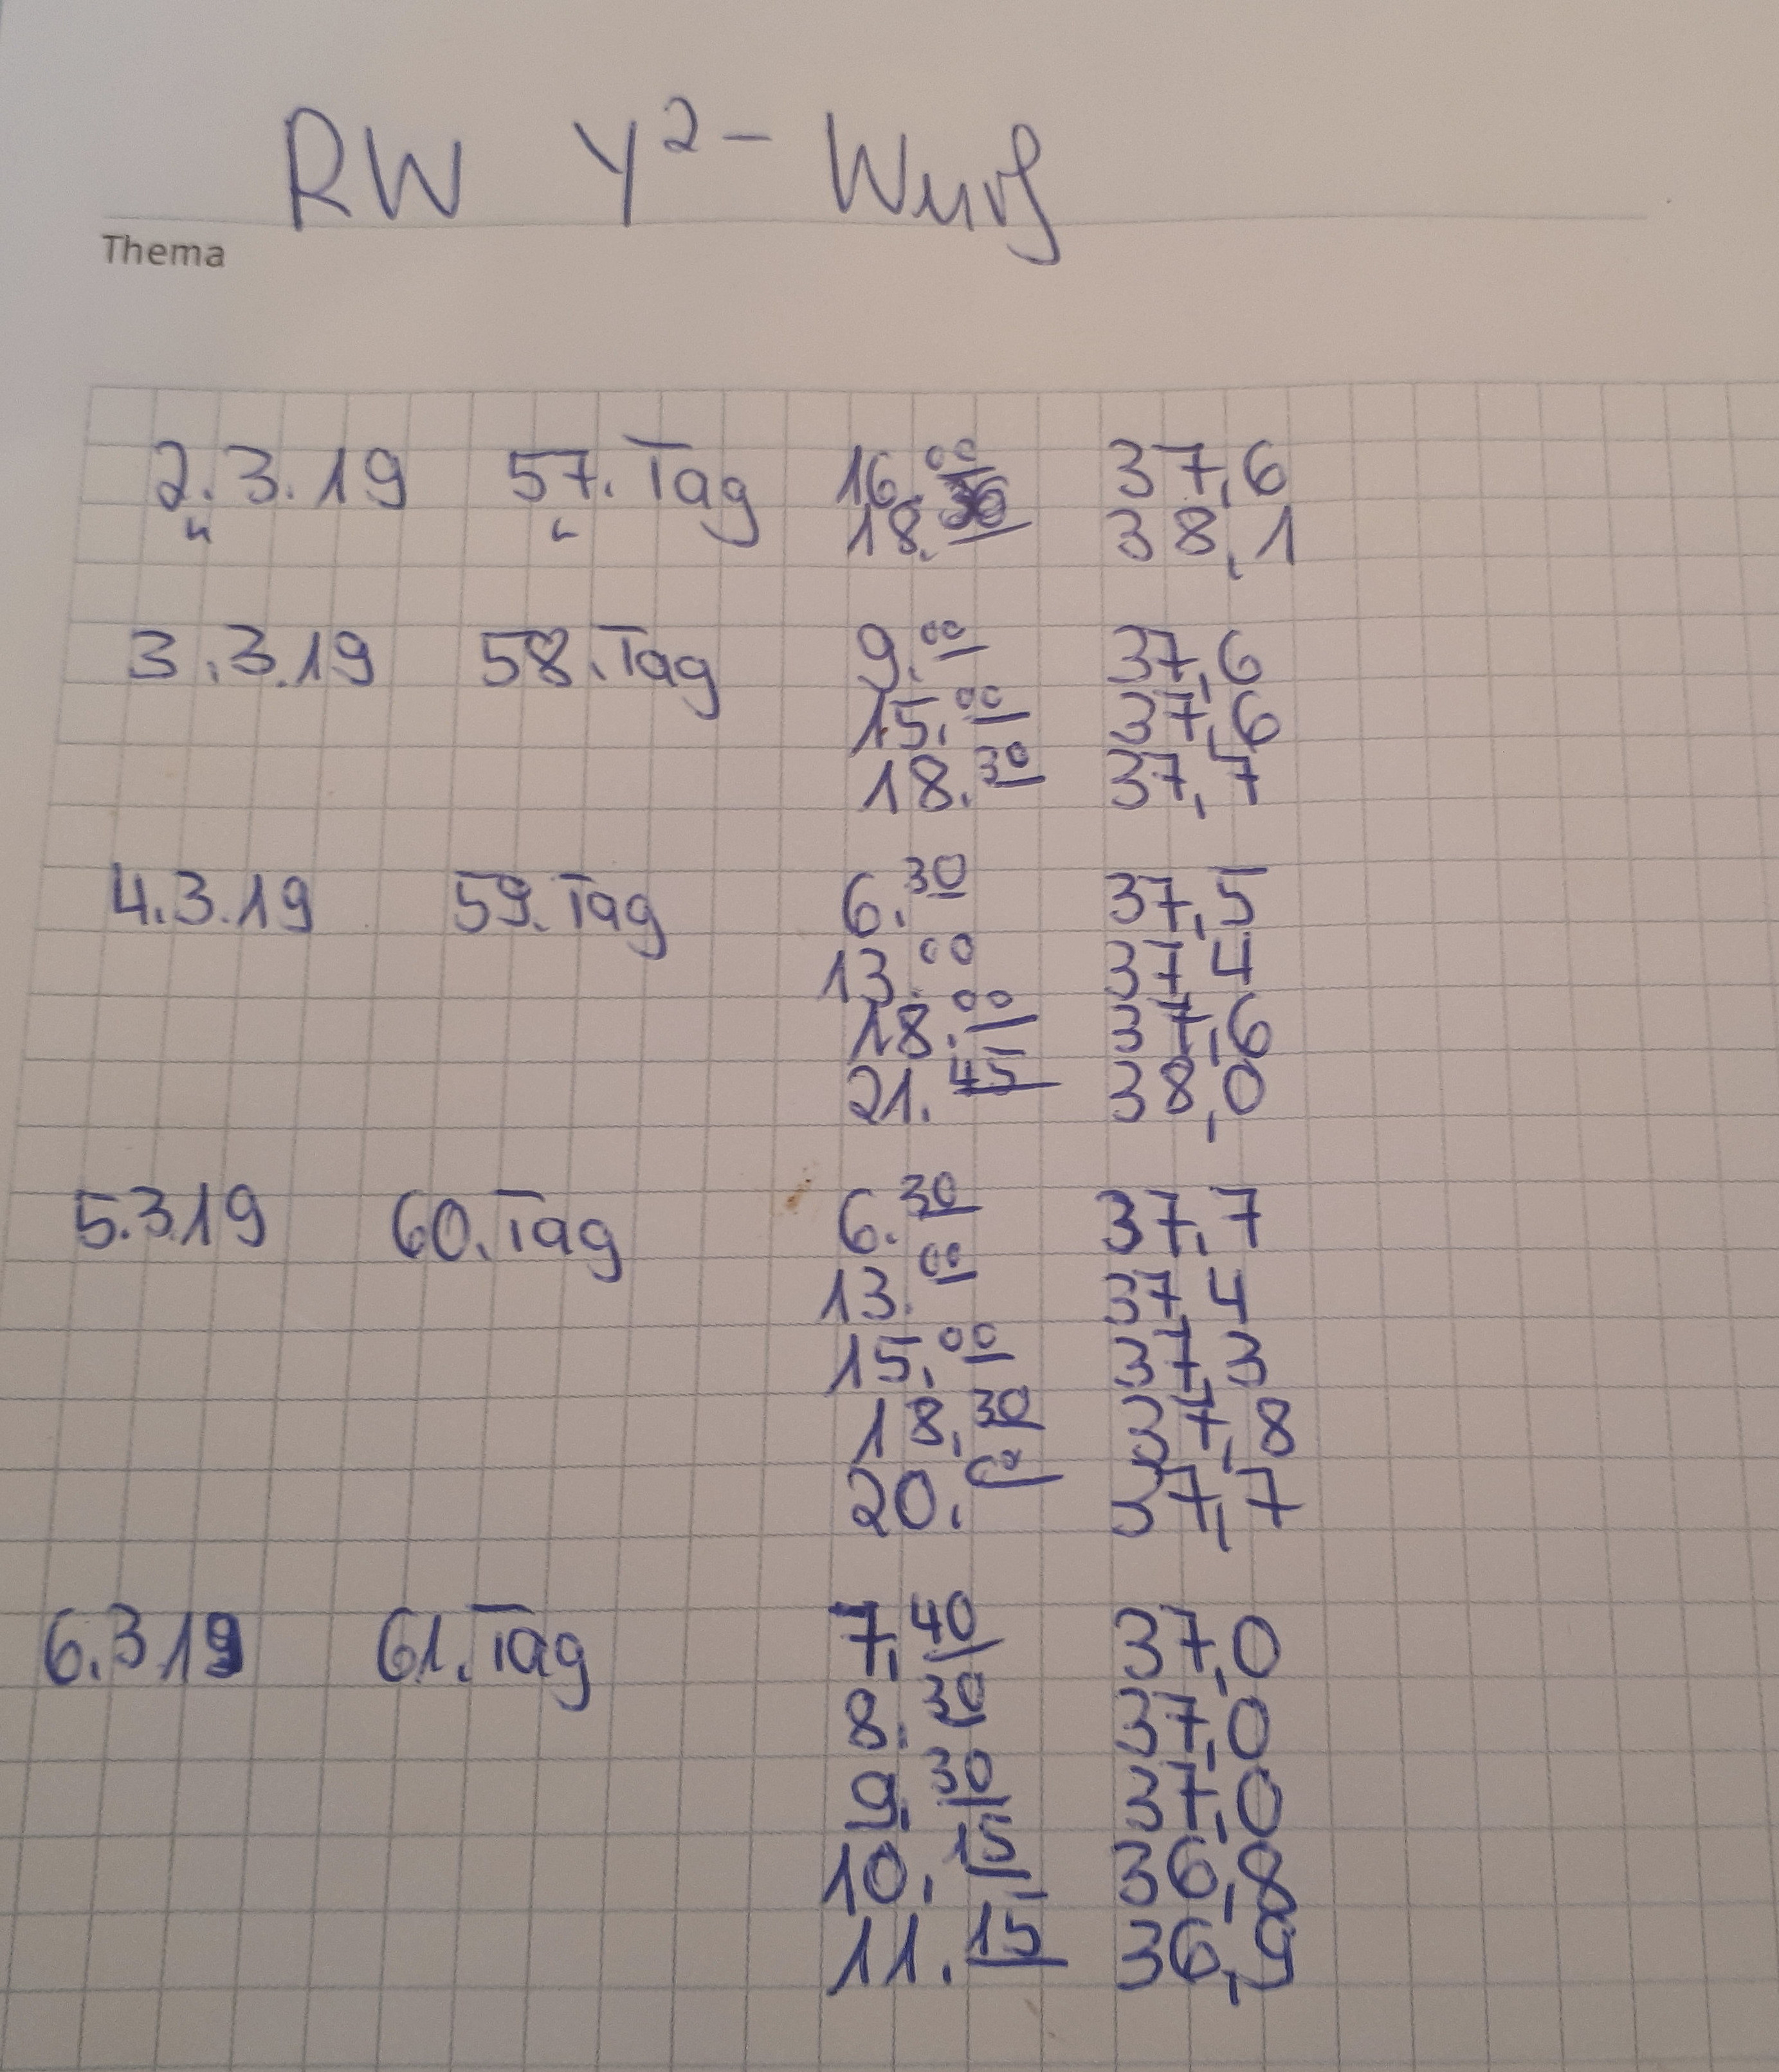 RW Y²- Wurf
Thema
2.3.19 57. Tag 16.00 37,6
" " 18.30 38,1
3.3.19 58. Tag 9.00 37,6
15.00 37,6
18.30 37,7
4.3.19 59. Tag 6.30 37,5
13.00 37,4
18.00 37,6
21.45 38,0
5.3.19 60. Tag 6.30 37,7
13.00 37,4
15.00 37,3
18.30 37,8
20.00 37,7
6.3.19 61. Tag 7.40 37,0
8.30 37,0
9.30 37,0
10.15 36,8
11.15 36,9